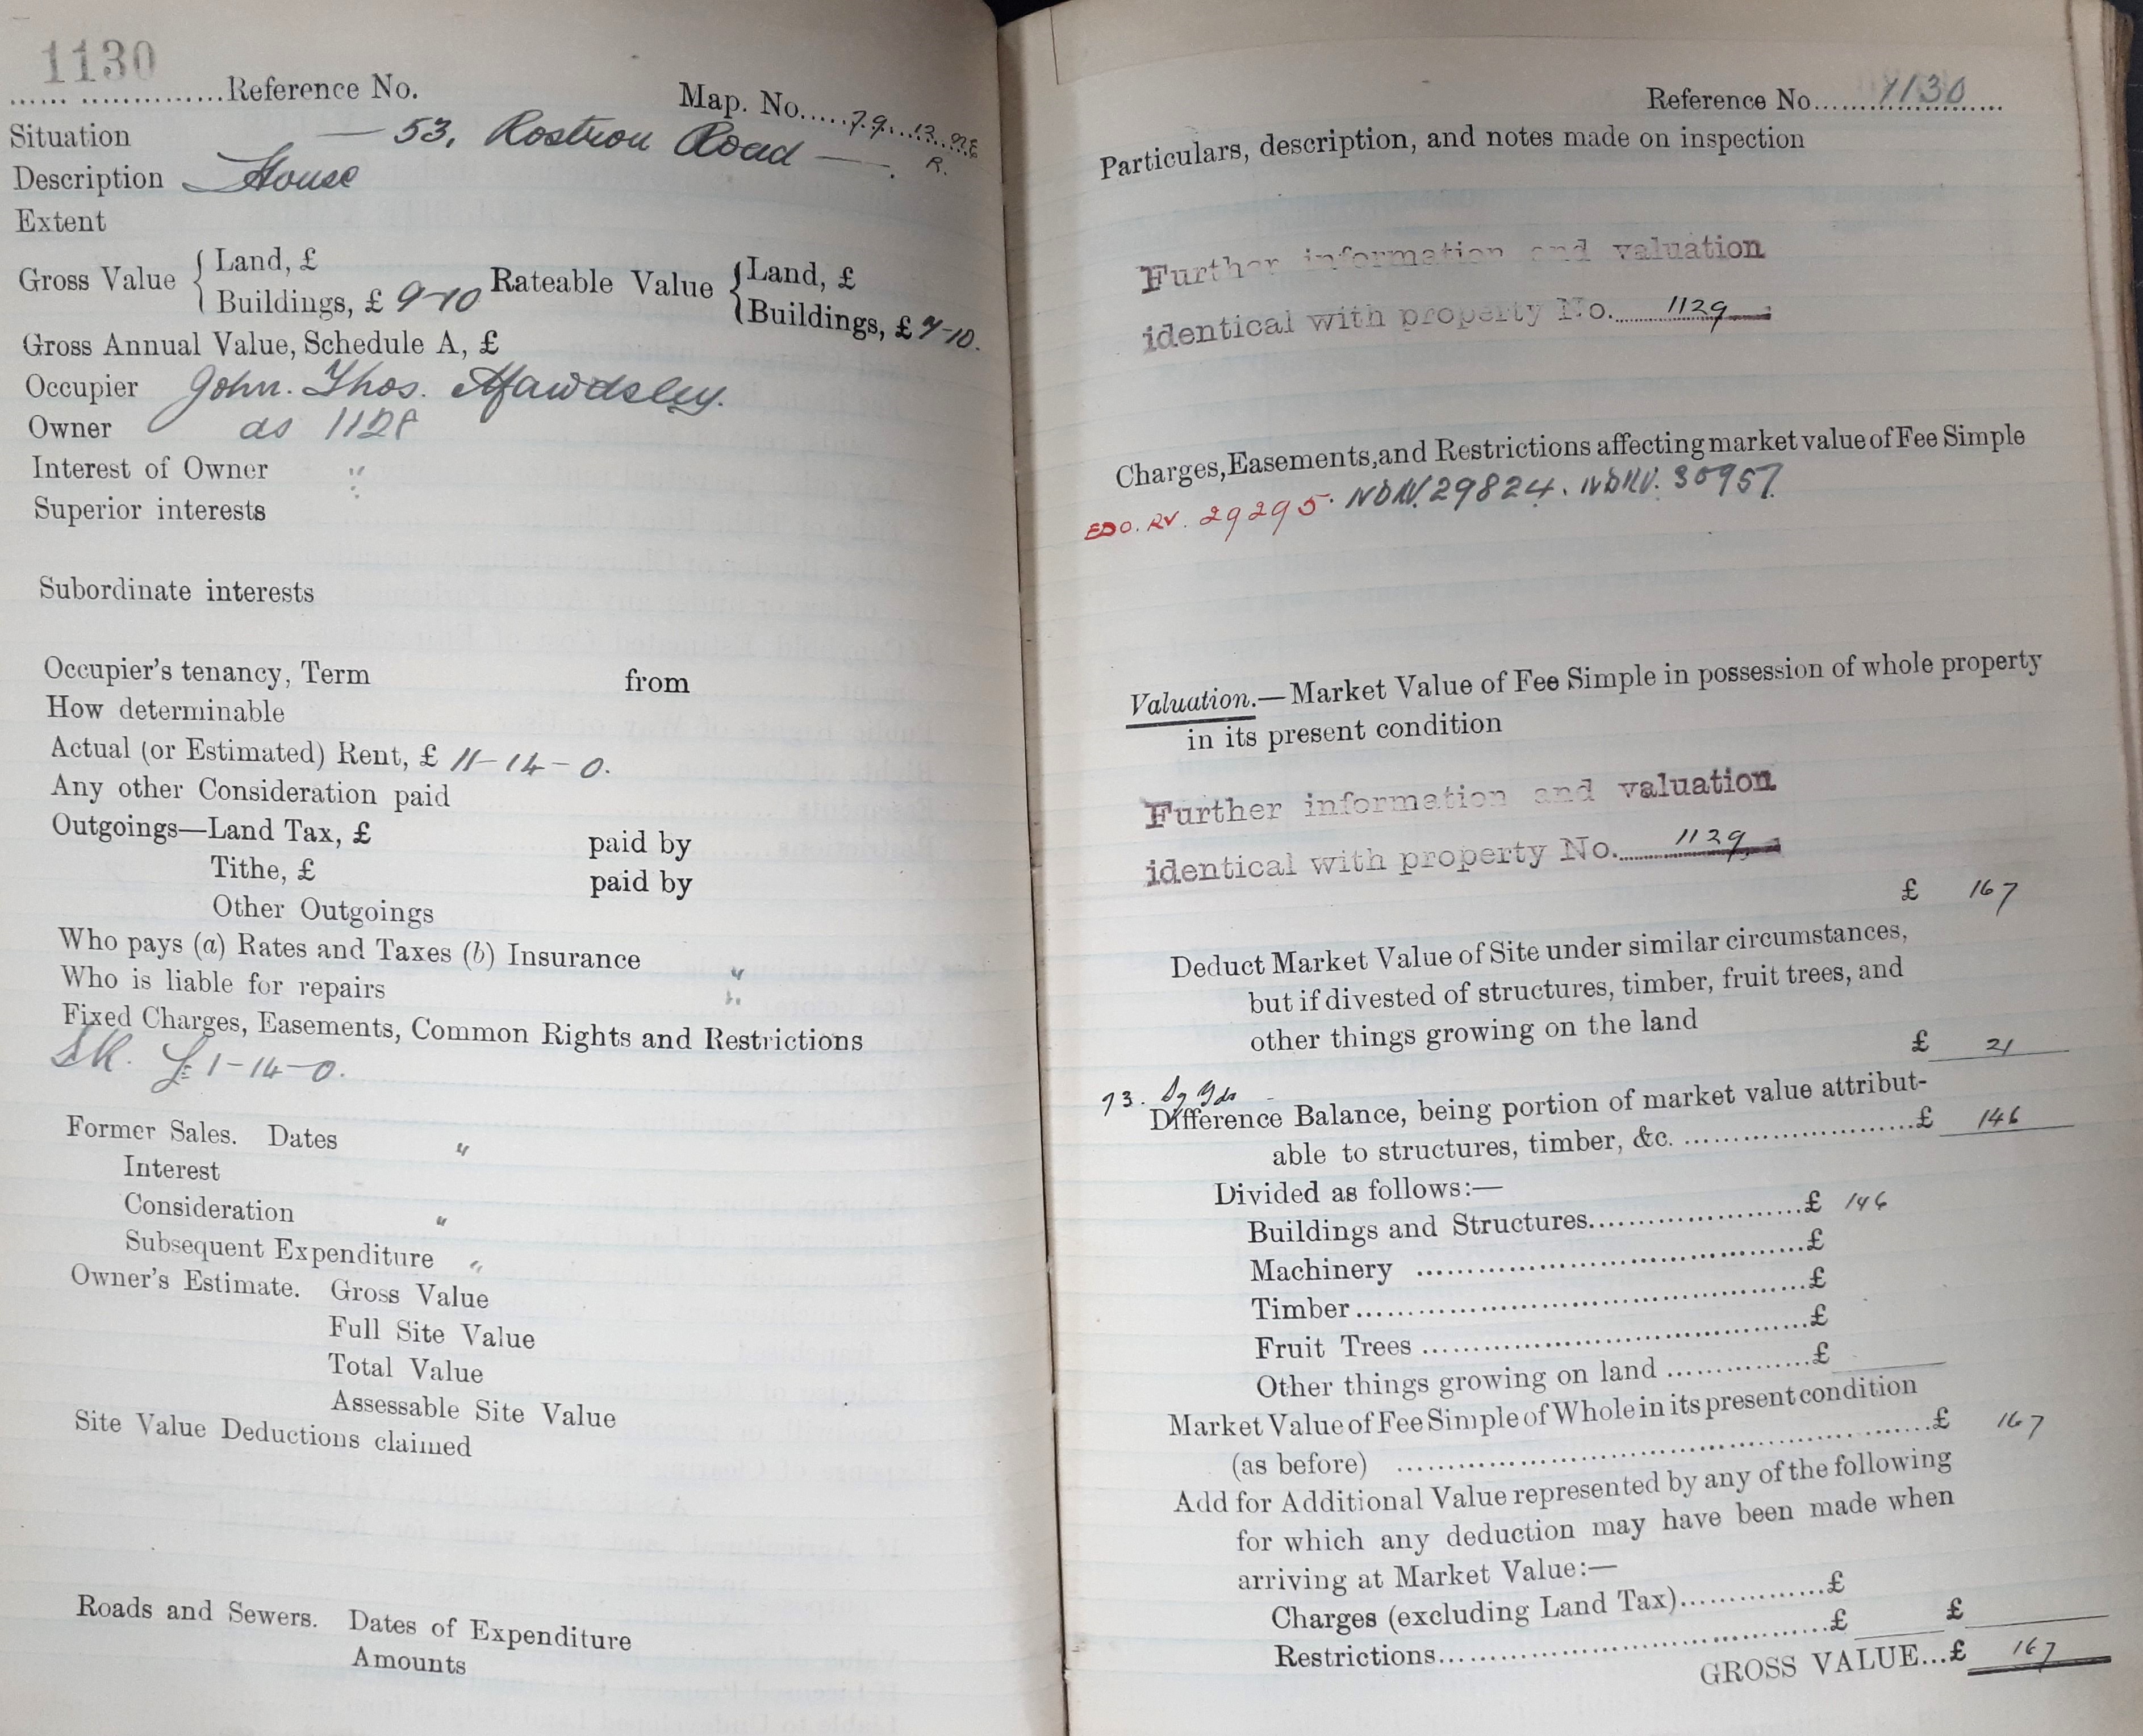 1130
Reference No.
Map. No. 79. 13.
R.
Situation — 53, Rostron Road —.
Description House
Extent
Gross Value { Land, £
Buildings, £ 9-10
Rateable Value { Land, £
Buildings, £ 7-10.
Gross Annual Value, Schedule A, £
Occupier John. Thos. Mawdsley.
Owner as 1128
Interest of Owner "
Superior interests
Subordinate interests
Occupier's tenancy, Term from
How determinable
Actual (or Estimated) Rent, £ 11-14-0.
Any other Consideration paid
Outgoings—Land Tax, £ paid by
Tithe, £ paid by
Other Outgoings
Who pays (a) Rates and Taxes (b) Insurance "
Who is liable for repairs "
Fixed Charges, Easements, Common Rights and Restrictions
£1-14-0.
Former Sales. Dates "
Interest
Consideration "
Subsequent Expenditure "
Owner's Estimate. Gross Value
Full Site Value
Total Value
Assessable Site Value
Site Value Deductions claimed
Roads and Sewers. Dates of Expenditure
Amounts
Reference No. 1130
Particulars, description, and notes made on inspection
Further information and valuation
identical with property No. 1129
Charges, Easements, and Restrictions affecting market value of Fee Simple
EDO. RV. 29295. NDRV. 29824. NDRV. 30957.
Valuation.—Market Value of Fee Simple in possession of whole property
in its present condition
Further information and valuation
identical with property No. 1129
£ 167
Deduct Market Value of Site under similar circumstances,
but if divested of structures, timber, fruit trees, and
other things growing on the land
£ 21
73. Sq Yds
Difference Balance, being portion of market value attribut-
able to structures, timber, &c. £ 146
Divided as follows:—
Buildings and Structures £ 146
Machinery £
Timber £
Fruit Trees £
Other things growing on land £
Market Value of Fee Simple of Whole in its present condition
(as before) £ 167
Add for Additional Value represented by any of the following
for which any deduction may have been made when
arriving at Market Value:—
Charges (excluding Land Tax) £
Restrictions £ £
GROSS VALUE...£ 167